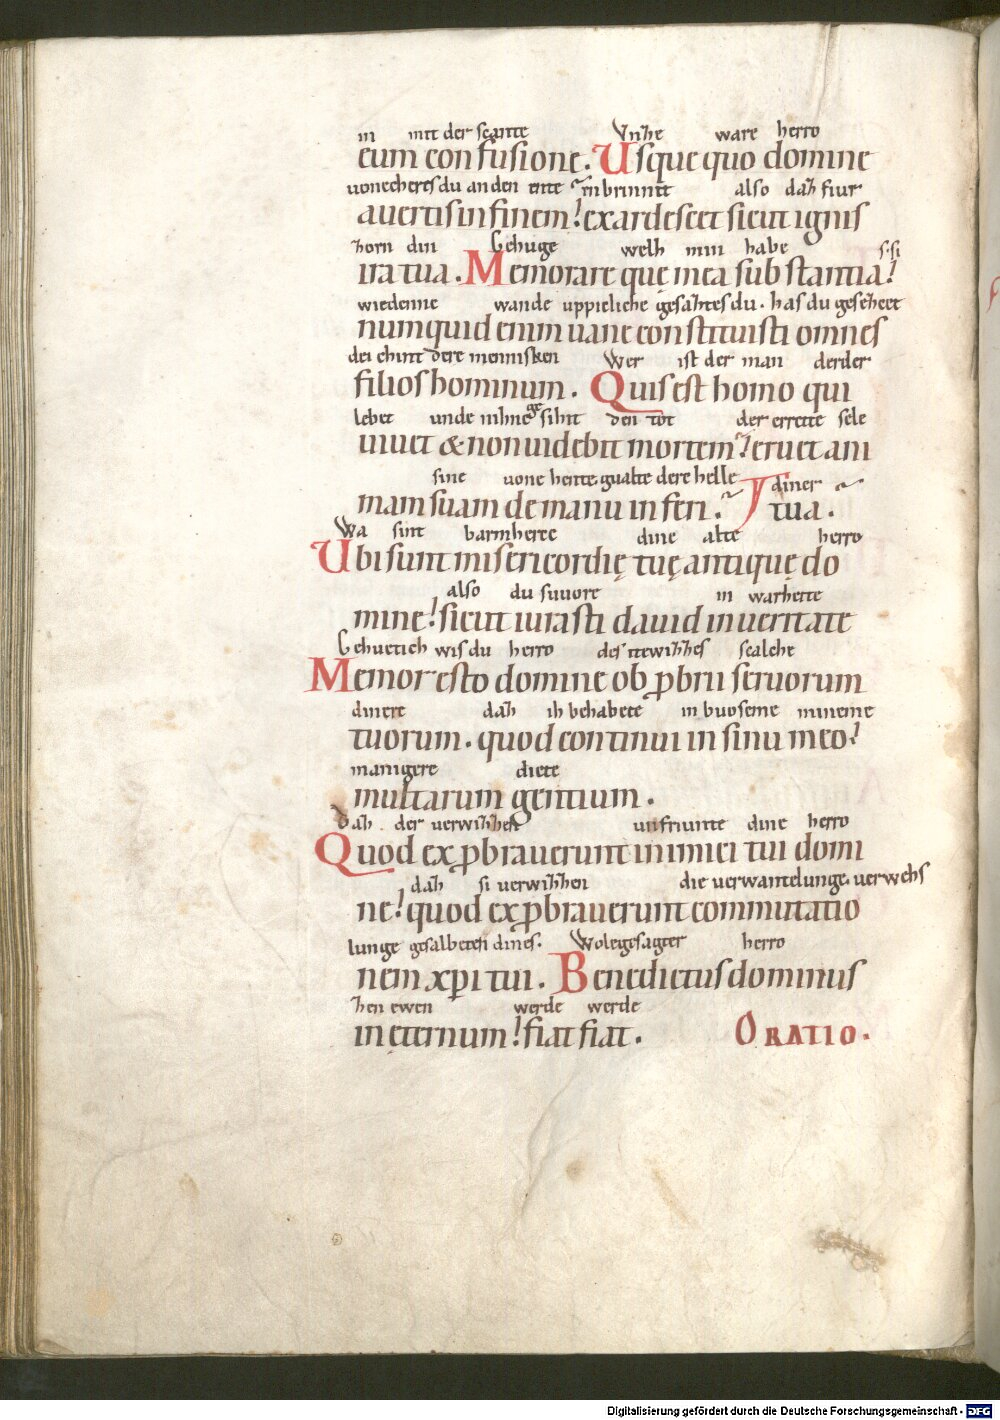 in mit der scante Vnhe ware herro
eum confusione. Usque quo domine
vonecheres du an den ente inbrinnit also daz fiur
auertis in finem? exardescet sicut ignis
zorn din Gehuge welh min habe s·si
ira tua. Memorare quę mea substantia?
wiedenne wande uppicliche gesaztes du. has du gescheet
numquid enim uane constituisti omnes
dei chint dere mennisken Wer ist der man derder
filios hominum. Quis est homo qui
lebet unde nihne gesihit den tot der errette sele
uiuet & non uidebit mortem? eruet ani
sine vone hente. gualte dere helle diner
mam suam de manu inferi. tua.
Wa sint barmherce dine alte herro
Ubi sunt misericordię tuę antiquę do
also du suuore in warheite
mine? sicut iurasti dauid in ueritate
Gehuctich wis du herro des itewizzes scalche
Memor esto domine ob pbrii seruorum
dinere daz ih behabete in buoseme mineme
tuorum. quod continui in sinu meo?
manigere diete
multarum gentium.
Daz der verwizzen unfriunte dine herro
Quod expbrauerunt inimici tui domi
daz si verwizzen die verwantelunge. verwehs
ne? quod expbrauerunt commutatio
lunge gesalbeten dines. Wolegesagter herro
nem xpi tui. Benedictus dominus
zen ewen werde werde
in ęternum? fiat fiat. ORATIO.
Digitalisierung gefördert durch die Deutsche Forschungsgemeinschaft - DFG